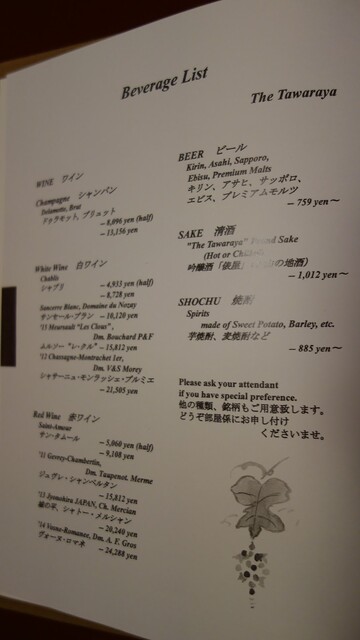 Beverage List
The Tawaraya
WINE ワイン
Champagne シャンパン
Delamotte, Brut
ドゥラモット, ブリュット
– 8,096 yen (half)
– 13,156 yen
White Wine 白ワイン
Chablis
シャブリ – 4,933 yen (half)
– 8,728 yen
Sancerre Blanc, Domaine du Nozay
サンセール・ブラン – 10,120 yen
'11 Meursault "Les Clous",
Dm. Bouchard P&F
ムルソー "レ・クル" – 15,812 yen
'12 Chassagne-Montrachet 1er,
Dm. V&S Morey
シャサーニュ・モンラッシェ・プルミエ
– 21,505 yen
Red Wine 赤ワイン
Saint-Amour
サン・タムール – 5,060 yen (half)
– 9,108 yen
'11 Gevrey-Chambertin,
Dm. Taupenot. Merme
ジュヴレ・シャンベルタン
– 15,812 yen
'13 Jyonohira JAPAN, Ch. Mercian
城の平, シャトー・メルシャン
– 20,240 yen
'14 Vosne-Romanee, Dm. A. F. Gros
ヴォーヌ・ロマネ – 24,288 yen
BEER ビール
Kirin, Asahi, Sapporo,
Ebisu, Premium Malts
キリン、アサヒ、サッポロ、
エビス、プレミアムモルツ
– 759 yen～
SAKE 清酒
"The Tawaraya" Sake
(Hot or
吟醸酒「俵屋」 の地酒)
– 1,012 yen～
SHOCHU 焼酎
Spirits
made of Sweet Potato, Barley, etc.
芋焼酎、麦焼酎など
– 885 yen～
Please ask your attendant
if you have special preference.
他の種類、銘柄もご用意致します。
どうぞ部屋係にお申し付け
くださいませ。